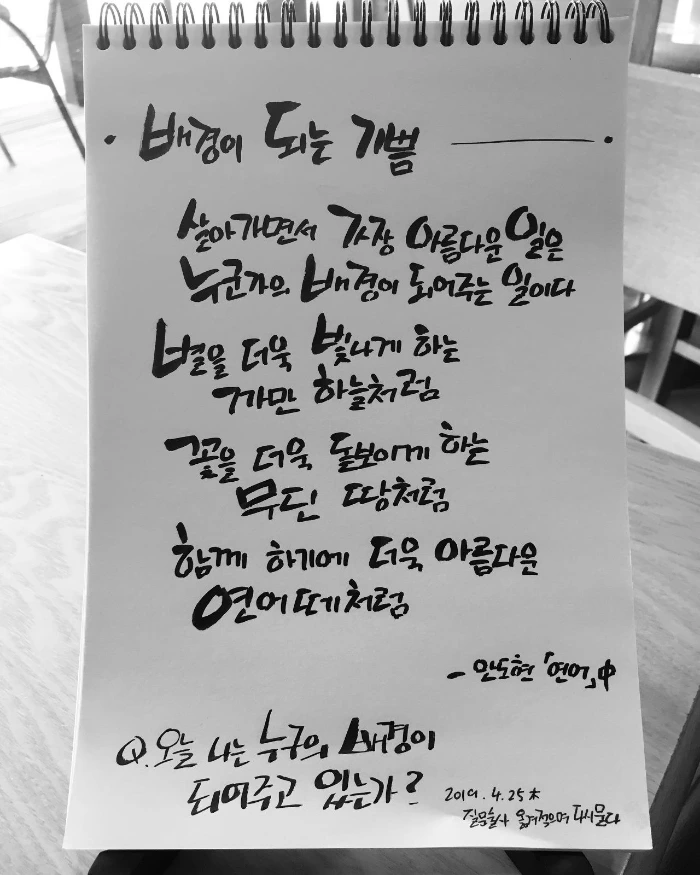 · 배경이 되는 기쁨 ―――·
살아가면서 가장 아름다운 일은
누군가의 배경이 되어주는 일이다
별을 더욱 빛나게 하는
까만 하늘처럼
꽃을 더욱 돋보이게 하는
무딘 땅처럼
함께 하기에 더욱 아름다운
연어떼처럼
- 안도현 「연어」中
Q. 오늘 나는 누구의 배경이
되어주고 있는가?
2019. 4. 25 木
질문술사 옮겨적으며 다시묻다